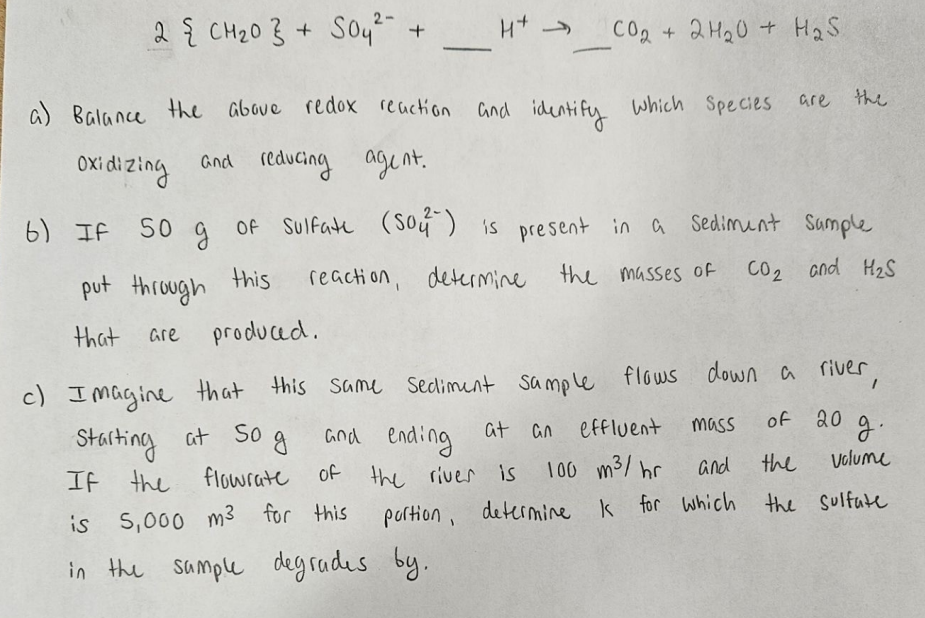 2 { CH2O } + SO4²⁻ + __ H⁺ → __ CO2 + 2H2O + H2S
a) Balance the above redox reaction and identify which species are the
oxidizing and reducing agent.
b) If 50 g of sulfate (SO4²⁻) is present in a sediment sample
put through this reaction, determine the masses of CO2 and H2S
that are produced.
c) Imagine that this same sediment sample flows down a river,
starting at 50 g and ending at an effluent mass of 20 g.
If the flowrate of the river is 100 m³/hr and the volume
is 5,000 m³ for this portion, determine k for which the sulfate
in the sample degrades by.